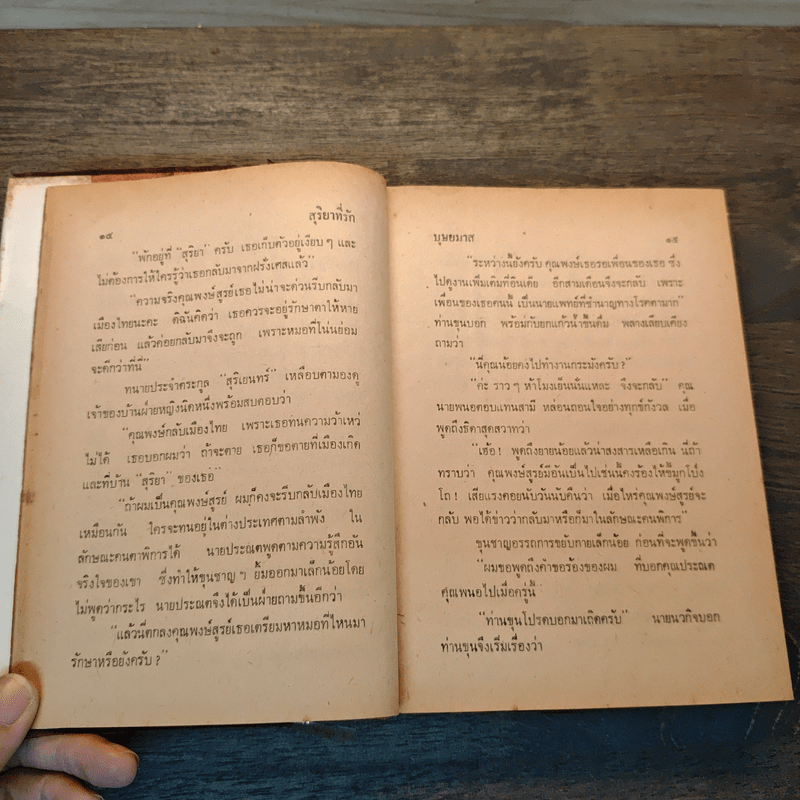 ๑๔
สุริยาที่รัก
"พักอยู่ที่ "สุริยา" ครับ เธอเก็บตัวอยู่เงียบ ๆ และ
ไม่ต้องการให้ใครรู้ว่าเธอกลับมาจากฝรั่งเศสแล้ว"
"ความจริงคุณพงษ์สูรย์เธอไม่น่าจะด่วนรีบกลับมา
เมืองไทยนะคะ ดิฉันคิดว่า เธอควรจะอยู่รักษาตาให้หาย
เสียก่อน แล้วค่อยกลับมาจึงจะถูก เพราะหมอที่โน่นย่อม
จะดีกว่าที่นี่"
ทนายประจำตระกูล "สุริเยนทร์" เหลือบตามองดู
เจ้าของบ้านฝ่ายหญิงนิดหนึ่งพร้อมสบตอบว่า
"คุณพงษ์กลับเมืองไทย เพราะเธอทนความว้าเหว่
ไม่ได้ เธอบอกผมว่า ถ้าจะตาย เธอก็ขอตายที่เมืองเกิด
และที่บ้าน "สุริยา" ของเธอ"
"ถ้าผมเป็นคุณพงษ์สูรย์ ผมก็คงจะรีบกลับเมืองไทย
เหมือนกัน ใครจะทนอยู่ในต่างประเทศตามลำพัง ใน
ลักษณะคนตาพิการได้ นายประณตพูดตามความรู้สึกอัน
จริงใจของเขา ซึ่งทำให้ขุนชาญ ๆ ยิ้มออกมาเล็กน้อยโดย
ไม่พูดว่ากระไร นายประณตจึงได้เป็นฝ่ายถามขึ้นอีกว่า
"แล้วนี่ตกลงคุณพงษ์สูรย์เธอเตรียมหาหมอที่ไหนมา
รักษาหรือยังครับ ?"
บุษยมาส
๑๕
"ระหว่างนี้ยังครับ คุณพงษ์เธอรอเพื่อนของเธอ ซึ่ง
ไปดูงานเพิ่มเติมที่อินเดีย อีกสามเดือนจึงจะกลับ เพราะ
เพื่อนของเธอคนนี้ เป็นนายแพทย์ที่ชำนาญทางโรคตามาก"
ท่านขุนบอก พร้อมกับยกแก้วน้ำขึ้นดื่ม พลางเลียบเคียง
ถามว่า
"นี่คุณน้อยคงไปทำงานกระมังครับ ?"
"ค่ะ ราว ๆ ห้าโมงเย็นนั่นแหละ จึงจะกลับ" คุณ
นายพนอตอบแทนสามี หล่อนถอนใจอย่างทุกข์กังวล เมื่อ
พูดถึงธิดาสุดสวาทว่า
"เฮ้อ ! พูดถึงยายน้อยแล้วน่าสงสารเหลือเกิน นี่ถ้า
ทราบว่า คุณพงษ์สูรย์มีอันเป็นไปเช่นนี้คงร้องไห้ขี้มูกโป่ง
โถ ! เสียแรงคอยนับวันนับคืนว่า เมื่อไหร่คุณพงษ์สูรย์จะ
กลับ พอได้ข่าวว่ากลับมาหรือก็มาในลักษณะคนพิการ"
ขุนชาญอรรถการขยับกายเล็กน้อย ก่อนที่จะพูดขึ้นว่า
"ผมขอพูดถึงคำขอร้องของผม ที่บอกคุณประณต
คุณพนอไปเมื่อครู่นี้"
"ท่านขุนโปรดบอกมาเถิดครับ" นายนวกิจบอก
ท่านขุนจึงเริ่มเรื่องว่า